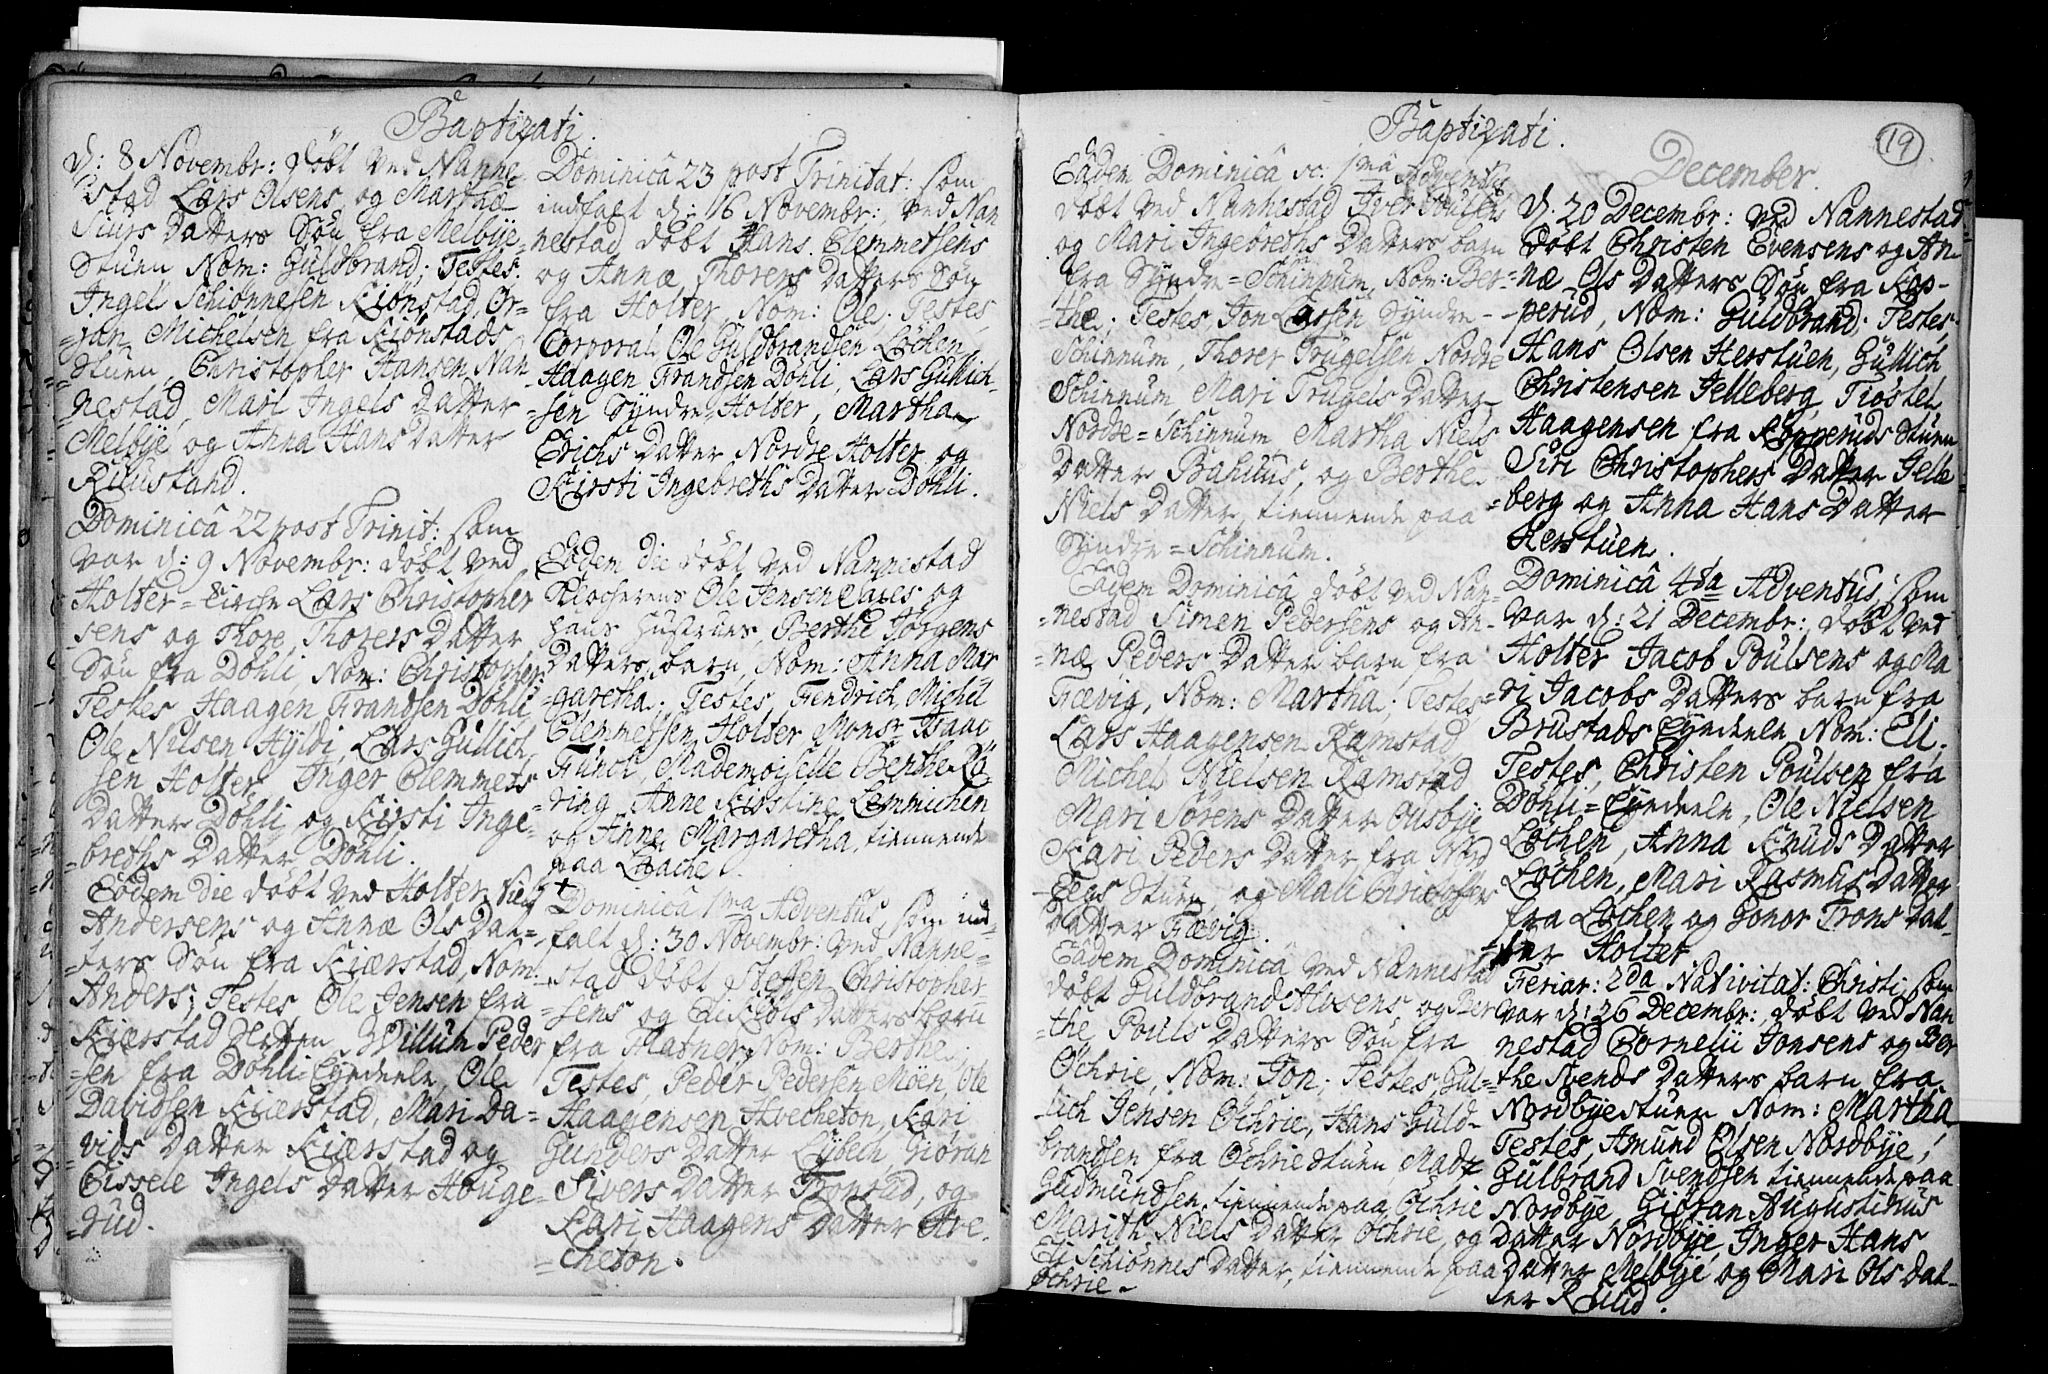 Baptizati.
d: 8 Novembr: döbt ved Nanne
stad Lars Olsens og Marthæ
Siurs Datters Sön fra Melbÿe
Stuen Nom: Guldbrand; Testes:
Ingel Schionnesen Kiönstad, Ör-
=jan Michelsen fra Kiönstads
Stuen, Christopher Hansen Nan
nestad, Mari Ingels Datter
Melbÿe og Anna Hans Datter
Rustand.
Dominicâ 22 post Trinit: som
var d: 9 Novembr: döbt ved
Holter=Kirche Lars Christopher
sens og Thore Thorers Datter
Sön fra Döhli, Nom: Christopher
Testes Haagen Frandsen Döhli
Ole Nilsen Hÿldi, Lars Gullich
sen Holter, Inger Clemmets
Datter Döhli og Kirsti Inge-
=breths Datter Döhli.
Eodem die döbt ved Holter Niels
Andersens og Annæ Ols Dat-
=ters Sön fra Kiærstad, Nom:
Anders; Testes Ole Jensen fra
Kiærstad, Willum Peder
=sen fra Döhli=Eÿedeele, Ole
Davidsen Kiærstad, Mari Da=
vids Datter Kiærstad og
Cissele Ingels Datter Houge=
rud.
Dominicâ 23 post Trinitat: som
indfalt d: 16 Novembr: ved Nan
nestad döbt Hans Clemmetsens
og Annæ Thorers Datters Sön
fra Holter, Nom: Ole; Testes,
Corporal Ole Guldbrandsen Löchen,
Haagen Frandsen Döhli, Lars Gullich-
sen Sÿndre Holter, Martha
Erichs Datter Nordre Holter, og
Kirsti Ingebreths Datter Döhli.
Eodem die döbt ved Nannestad
Klocherens Ole Jensen og
hans Hustrues Berthe Jörgens
Datters barn, Nom: Anna Mar
=garetha; Testes, Fendrich Michel
Clemmetsen Holter Monsr Isaac
Fünch, Mademoiselle Berthe Rö
ring, Anne Kirstine Lemmichen
og Anne Margaretha, tienende
paa Laache.
Dominicâ 1ma Adventus, som ind=
falt d: 30 Novembr: ved Nanne=
=stad döbt Steffen Christopher=
=sens og Ols Datters barn
fra Flatner, Nom: Berthe;
Testes, Peder Pedersen Möen, Ole
Haagensen Hvecheton, Kari
Gunders Datter Lÿbech, Giöran
Sivers Datter Tronrud, og
Kari Haagens Datter Hve
=cheton.
Baptizati.
19
Eâdem Dominicâ sc: 1mâ Adventus
döbt ved Nannestad Iver Poulsens
og Mari Ingebreths Datters barn
fra Sÿndre=Schinnum, Nom: Ber-
=the. Testes, Jon Larsen Sÿndre-
Schinnum, Thorer Trugelsen Nordre
Schinnum Mari Trugels Datter
Nordre=Schinnum, Martha Niels
Datter Bahuus, og Berthe
Niels Datter tiennende paa
Sÿndre=Schinnum.
Eâdem Dominicâ döbt ved Nan-
=nestad Simen Pedersens og An-
=næ Peders Datter barn fra
Fævig, Nom: Martha; Testes,
Lars Haagensen Ramstad,
Michel Nielsen Ramstad
Mari Sörens Datter Ousbÿe
Kari Peders Datter fra Nord
Stuen og Mali Christophers
Datter Fævig.
Eâdem Dominicâ ved Nannestad
döbt Guldbrand Alvsens og Ber
=the Pouls Datters Sön fra
Öchrie, Nom: Jon; Testes, Gul=
lich Jensen Öchrie, Hans Guld-
brandsen fra Öchrie Stuen, Madz
Gudmundsen, tiennende paa Öchrie
Marith Niels Datter Öchrie, og
Eli Schionnes Datter, tiennende paa
Öchrie.
December.
d. 20 Decembr: ved Nannestad
döbt Christen Evensens og An-
næ Ols Datters Sön fra Kop-
-perud, Nom: Guldbrand. Testes.
Hans Olsen Herstuen, Gullich
Christensen Jelleberg, Tiöstel
Haagensen fra Kopperuds Stuen
Siri Christophers Datter Jelle
=berg og Anna Hans Datter
Herstuen.
Dominicâ 4ta Adventus, som
var d: 21 Decembr: döbt ved
Holter Jacob Poulsens og Ma
ri Jacobs Datters barn fra
Brustads Eÿedeele Nom: Eli.
Testes, Christen Poulsen fra
Döhli=Eÿedeele, Ole Nielsen
Löchen, Anna Knuds Datter
Löchen, Mari Rasmus Datter
fra Löchen og Gonor Trons Dat-
ter Holter
Feriar: 2da Nativitat: Christi, som
var d: 26 Decembr: döbt ved Nan
nestad Cornelii Jonsens og Ber
the Svends Datters barn fra
Nordbÿestuen Nom: Martha
Testes, Amund Olsen Nordbÿe,
Gulbrand Svendsen tiennende paa
Nordbÿe, Giöran Augustinus
Datter Nordbÿe, Inger Hans
Datter Melbÿe og Mari Ols Dat-
ter Ruud.